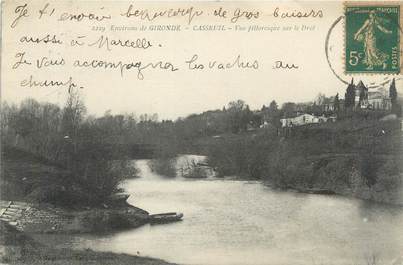 Je t'envoie beaucoup de gros baisers
2229 Environs de GIRONDE - CASSEUIL - Vue pittoresque sur le Drot
aussi à Marcelle.
Je vais accompagner les vaches au
champ.
5c